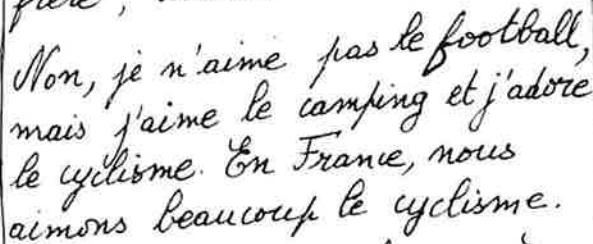 frère,
Non, je n'aime pas le football,
mais j'aime le camping et j'adore
le cyclisme. En France, nous
aimons beaucoup le cyclisme.